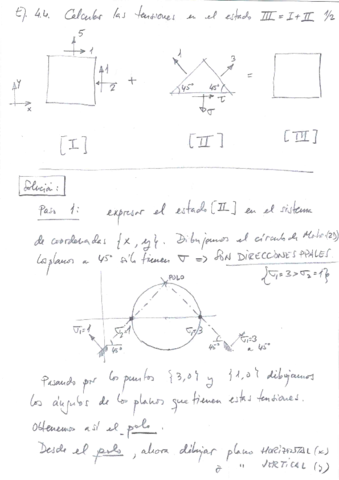 Ej 4.4. Calcular las tensiones en el estado III = I + II 1/2
5
1
1
2
y
x
+
1
3
45°
45°
τ
σ
=
[I]
[II]
[III]
Solución:
Paso 1: expresar el estado [II] en el sistema
de coordenadas {x, y}. Dibujamos el círculo de Mohr
Los planos a 45° sólo tienen σ ⇒ SON DIRECCIONES PPALES
{σ1=3 > σ2=1}
POLO
σ1=1
σ2=1
σ1=3
σ1=3
a 45°
45°
45°
Pasando por los puntos {3,0} y {1,0} dibujamos
los ángulos de los planos que tienen estas tensiones.
Obtenemos así el polo.
Desde el polo, ahora dibujar plano HORIZONTAL (x)
" VERTICAL (y)